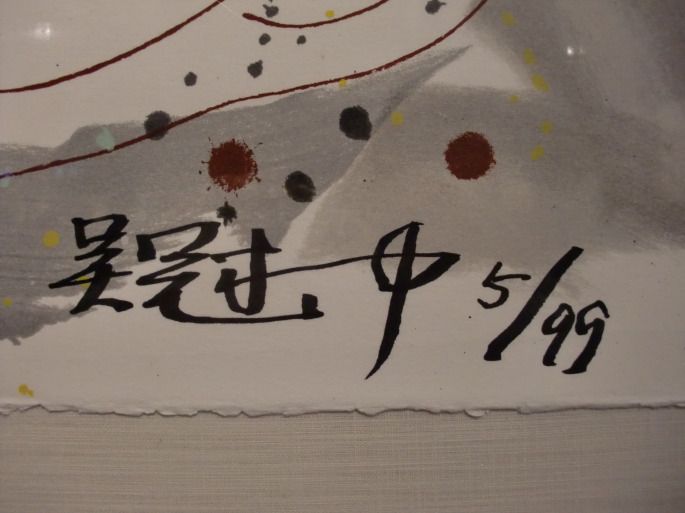 吴冠中 5/99